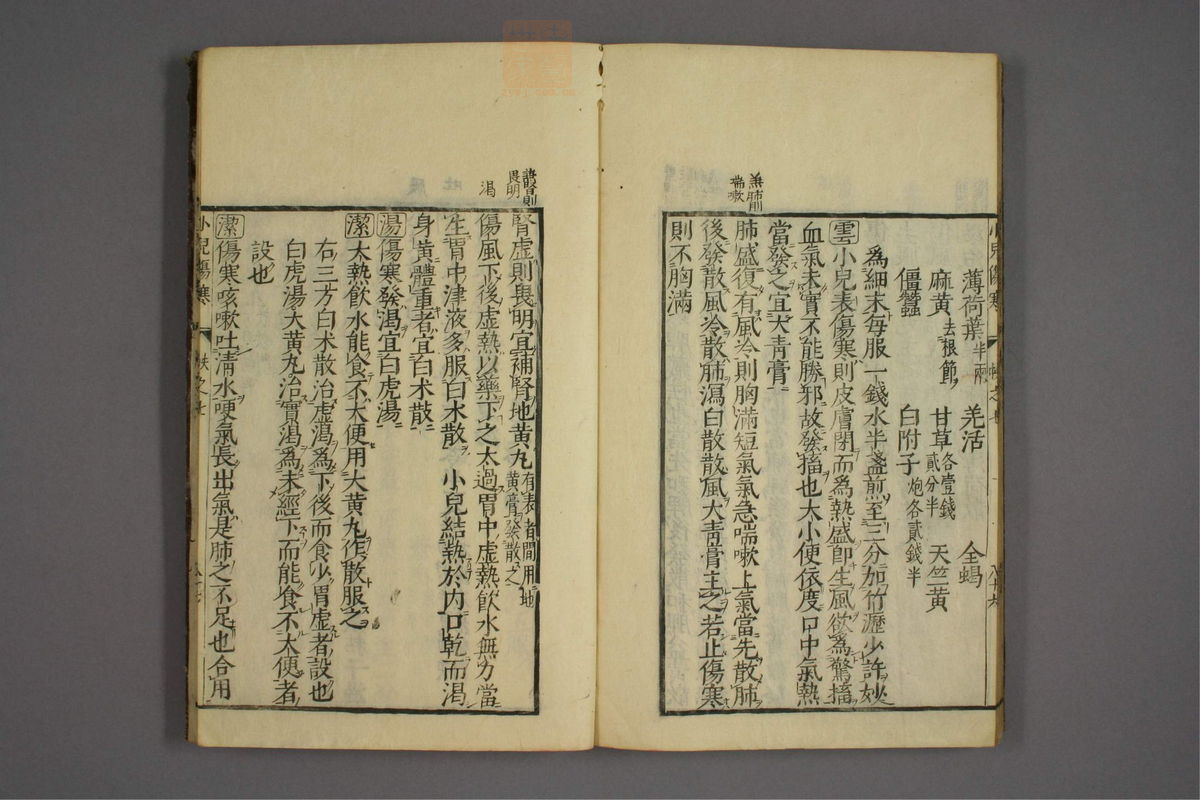 小兒傷寒
薄荷葉半兩　羌活　全蝎
麻黄去根節　甘草各壹錢貳分半　天竺黄
僵蠶　白附子炮各貳錢半
爲細末每服一錢水半盞煎至三分加竹瀝少許妙
雲小兒表傷寒則皮膚閉而爲熱盛即生風欲爲驚搐
血氣未實不能勝邪故發搐也大小便依度口中氣熱
當發之宜大青膏
兼肺則喘嗽
肺盛復有風冷則胸滿短氣氣急喘嗽上氣當先散肺
後發散風冷散肺瀉白散散風大青膏主之若止傷寒
則不胸滿
兼腎則畏明
腎虛則畏明宜補腎地黄丸有表者間用地黄膏發散之
渴
傷風下後虛熱以藥下之太過胃中虛熱飲水無力當
生胃中津液多服白朮散　小兒結熱於内口乾而渴
身黄體重者宜白朮散
湯傷寒發渴宜白虎湯
潔大熱飲水能食不大便用大黄丸作散服之
右三方白朮散治虛渴爲下後而食少胃虛者設也
白虎湯大黄丸治實渴爲未經下而能食不大便者
設也
潔傷寒咳嗽吐清水哽氣長出氣是肺之不足也合用
小兒傷寒